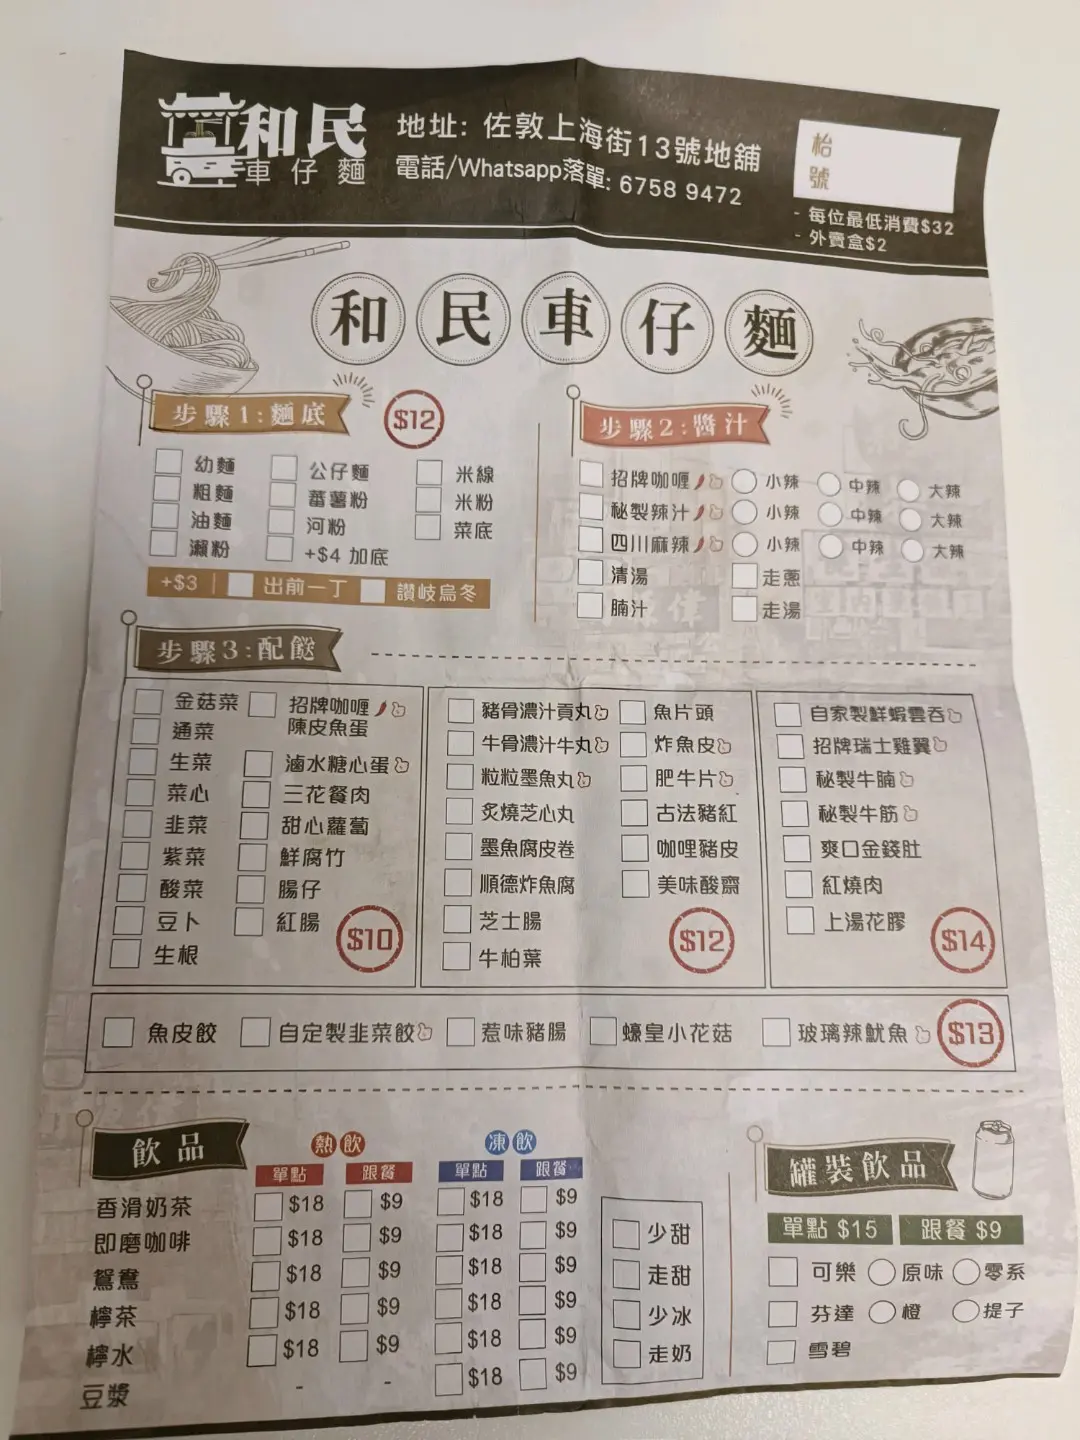 和民
車仔麵
地址: 佐敦上海街13號地舖
電話/Whatsapp落單: 6758 9472
枱號
- 每位最低消費$32
- 外賣盒$2
和民車仔麵
步驟1:麵底 $12
幼麵 公仔麵 米線
粗麵 蕃薯粉 米粉
油麵 河粉 菜底
瀨粉 +$4 加底
+$3 | 出前一丁 讚岐烏冬
步驟2:醬汁
招牌咖喱 小辣 中辣 大辣
秘製辣汁 小辣 中辣 大辣
四川麻辣 小辣 中辣 大辣
清湯 走蔥
腩汁 走湯
步驟3:配餸
金菇菜
通菜
生菜
菜心
韭菜
紫菜
酸菜
豆卜
生根
招牌咖喱
陳皮魚蛋
滷水糖心蛋
三花餐肉
甜心蘿蔔
鮮腐竹
腸仔
紅腸
$10
豬骨濃汁貢丸
牛骨濃汁牛丸
粒粒墨魚丸
炙燒芝心丸
墨魚腐皮卷
順德炸魚腐
芝士腸
牛柏葉
魚片頭
炸魚皮
肥牛片
古法豬紅
咖哩豬皮
美味酸齋
$12
自家製鮮蝦雲吞
招牌瑞士雞翼
秘製牛腩
秘製牛筋
爽口金錢肚
紅燒肉
上湯花膠
$14
魚皮餃 自定製韭菜餃 惹味豬腸 蠔皇小花菇 玻璃辣魷魚 $13
飲品
熱飲 凍飲
單點 跟餐 單點 跟餐
香滑奶茶 $18 $9 $18 $9
即磨咖啡 $18 $9 $18 $9
鴛鴦 $18 $9 $18 $9
檸茶 $18 $9 $18 $9
檸水 $18 $9 $18 $9
豆漿 - - $18 $9
少甜
走甜
少冰
走奶
罐裝飲品
單點 $15 跟餐 $9
可樂 原味 零系
芬達 橙 提子
雪碧